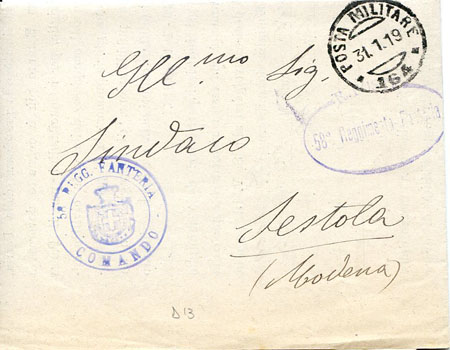 POSTA MILITARE
31.1.19
* 164 *
Ill.mo Sig.
58° Reggimento Fanteria
Sindaco
58° REGG. FANTERIA
COMANDO
Sestola
(Modena)
D13